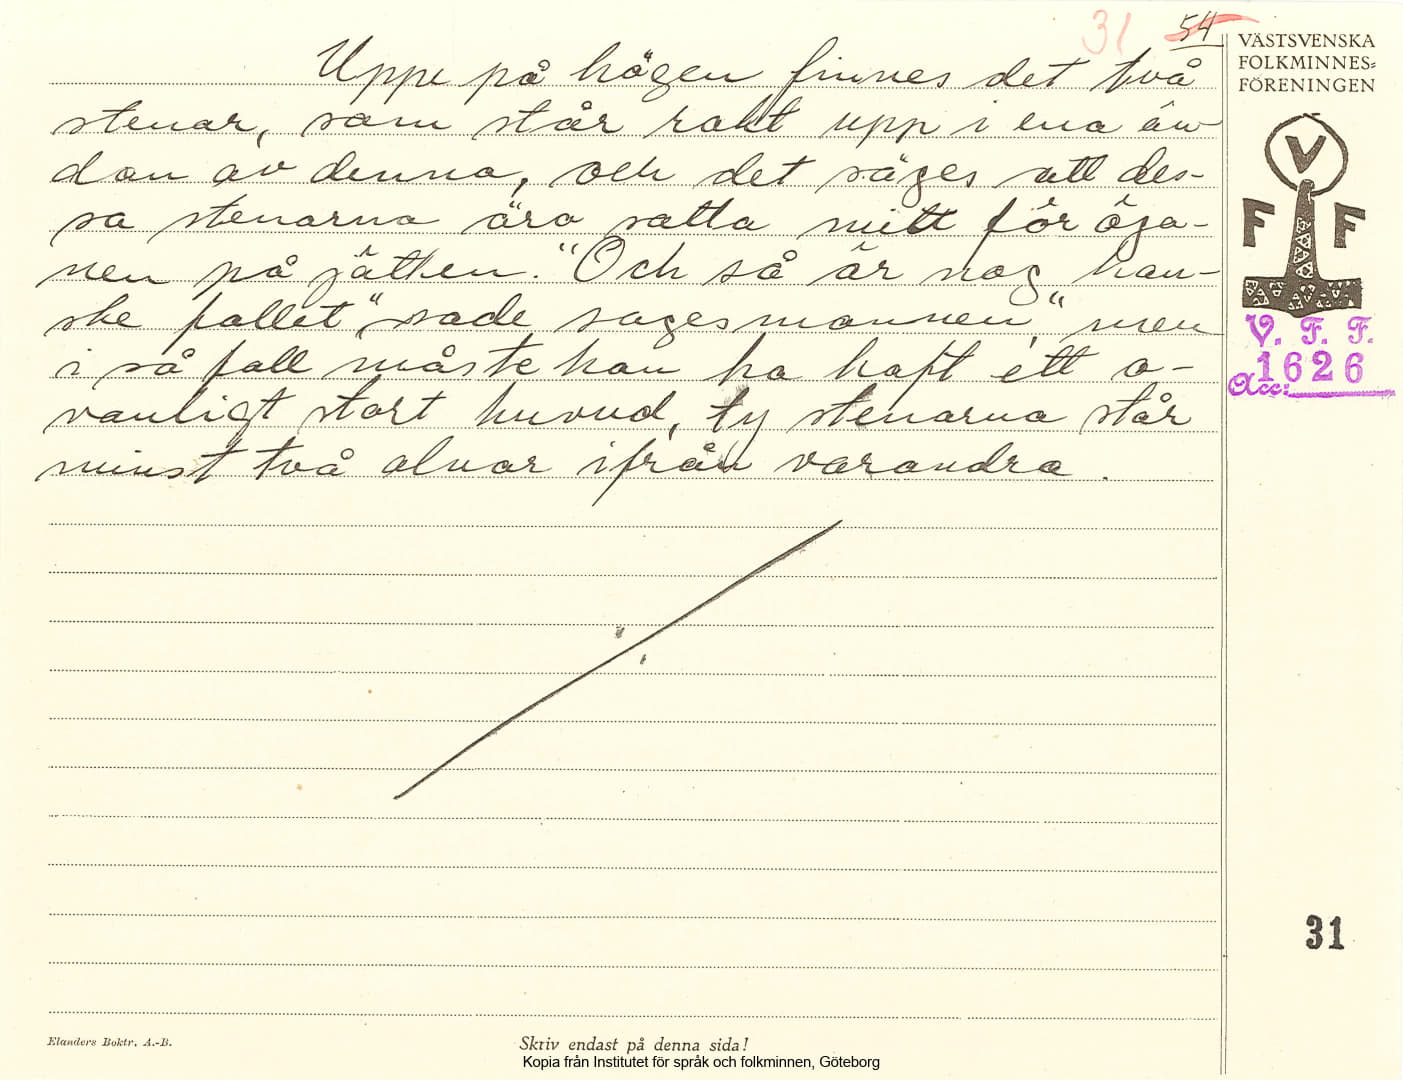 31 54
Uppe på högen finnes det två
stenar, som står rakt upp i ena än-
dan av denna, och det säges att des-
sa stenarna äro satta mitt för ögo-
nen på jätten. "Och så är nog kan-
ske fallet" sade sagesmannen, "men
i så fall måste han ha haft ett o-
vanligt stort huvud, ty stenarna står
minst två alnar ifrån varandra.
VÄSTSVENSKA
FOLKMINNES=
FÖRENINGEN
V
F F
V. F. F.
1626
Acc:
31
Elanders Boktr. A.-B.
Skriv endast på denna sida!
Kopia från Institutet för språk och folkminnen, Göteborg